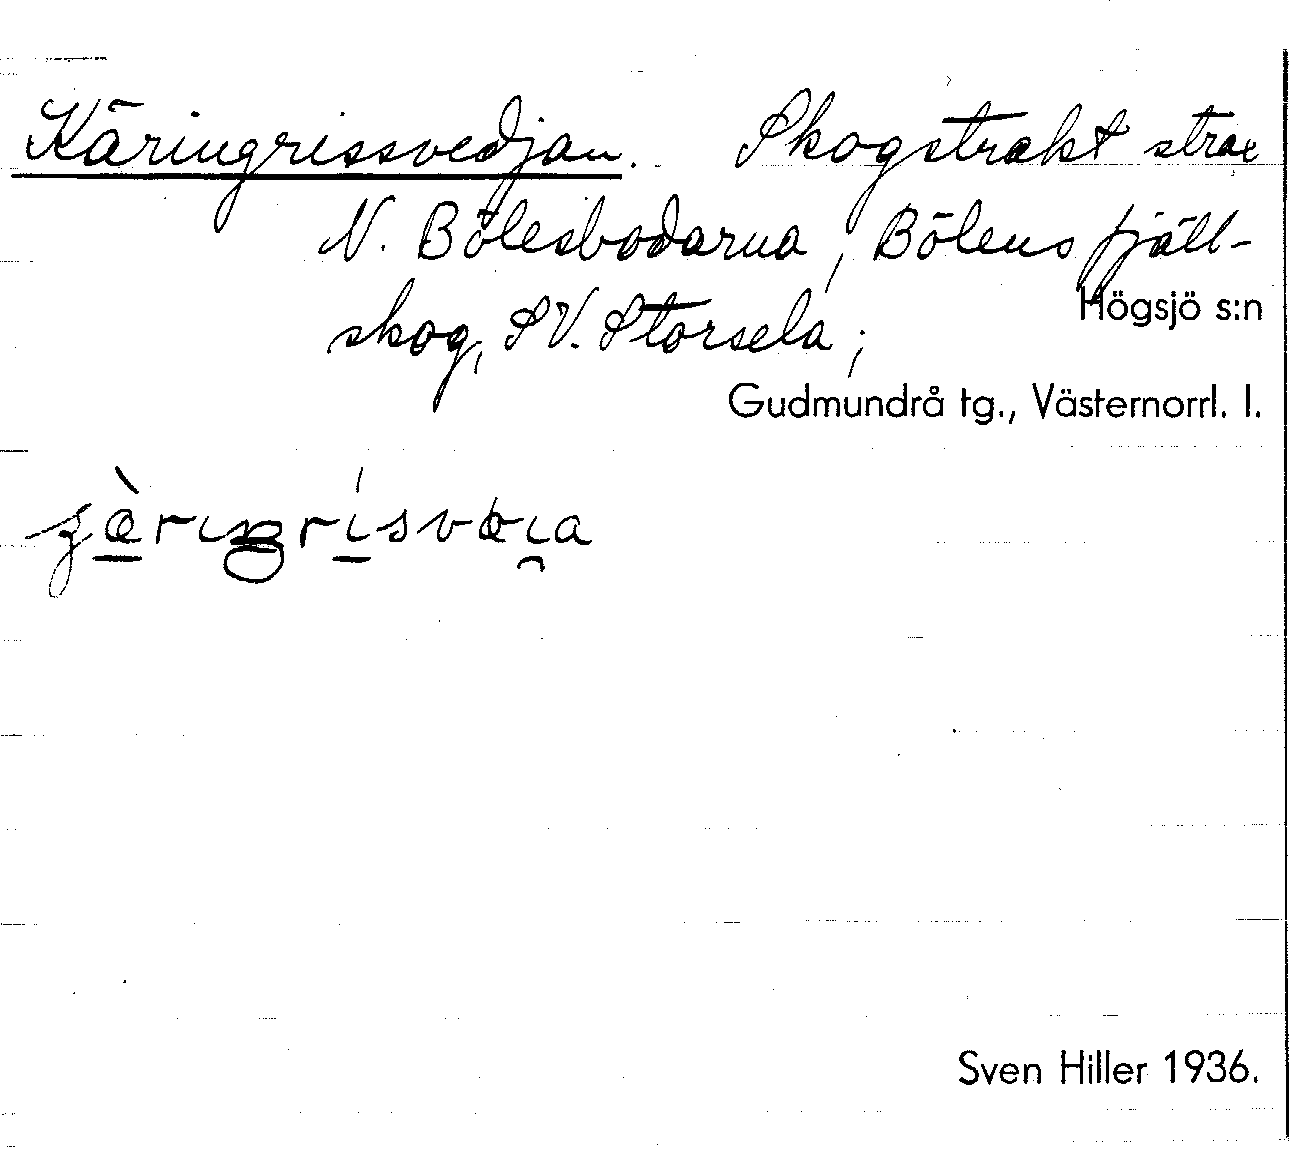 Käringrissvedjan. Skogstrakt strax
N. Bölesbodarna, Bölens fjäll-
skog, SV. Storsela;
Högsjö s:n
Gudmundrå tg., Västernorrl. l.
Sven Hiller 1936.